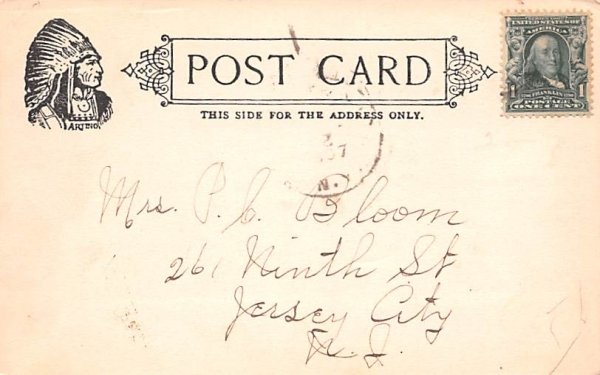 POST CARD
THIS SIDE FOR THE ADDRESS ONLY.
SERIES 1902
UNITED STATES OF
AMERICA
1 1
FRANKLIN
POSTAGE
ONE CENT
07
N.
Mrs. P. C. Bloom
261 Ninth St
Jersey City
N. J.